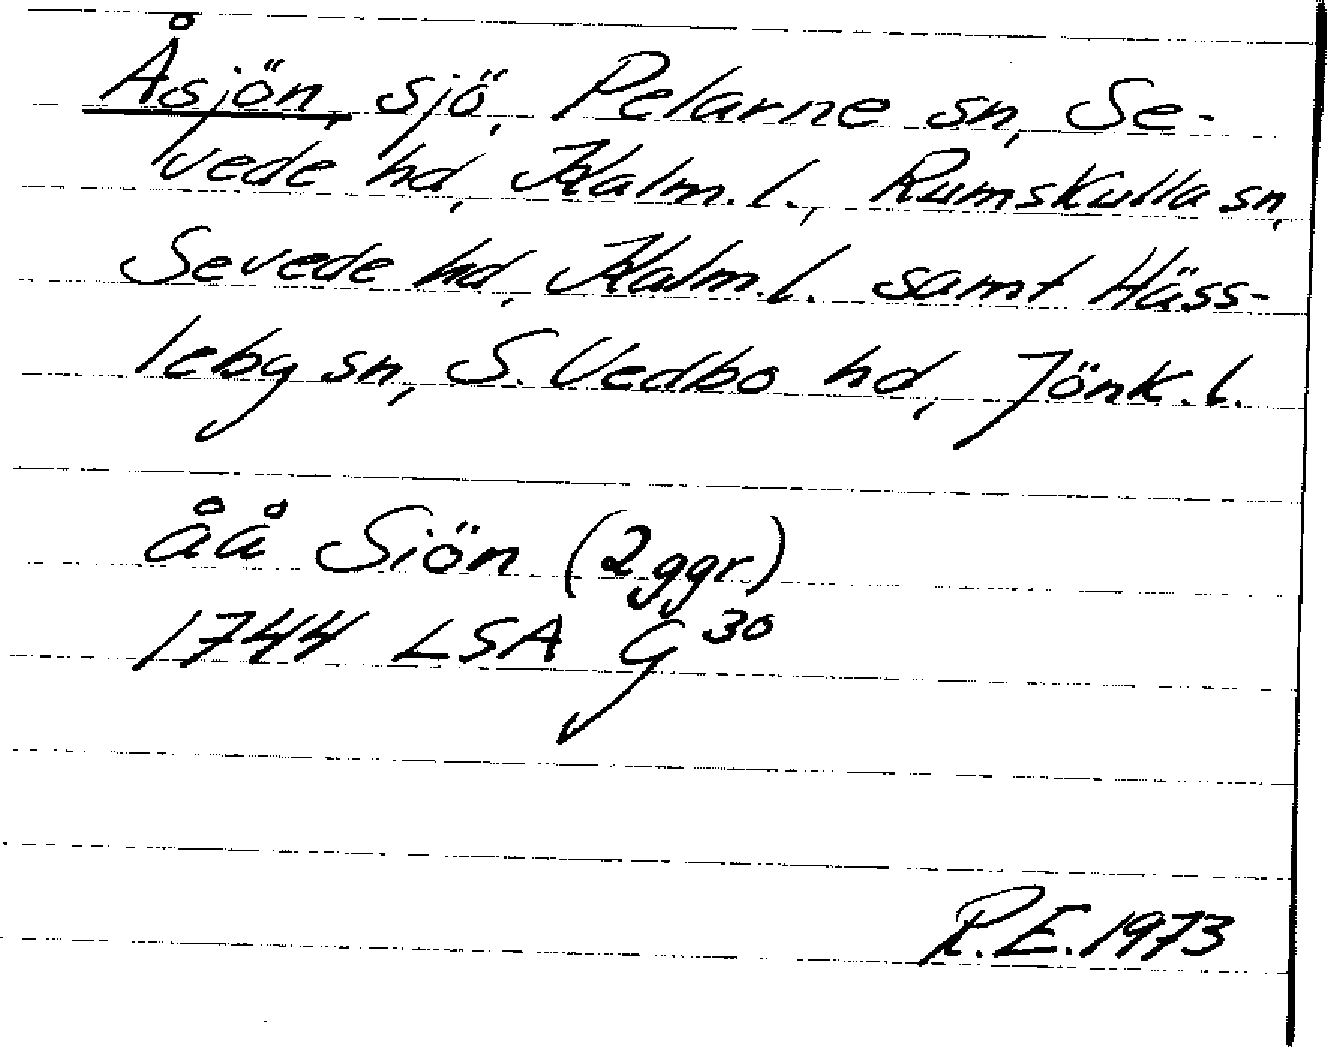 Åsjön, sjö, Pelarne sn, Se-
vede hd, Kalm. l., Rumskulla sn,
Sevede hd, Kalm. l. samt Häss-
leby sn, S. Vedbo hd, Jönk. l.
åå Siön (2 ggr)
1744 LSA G 30
R.E. 1973